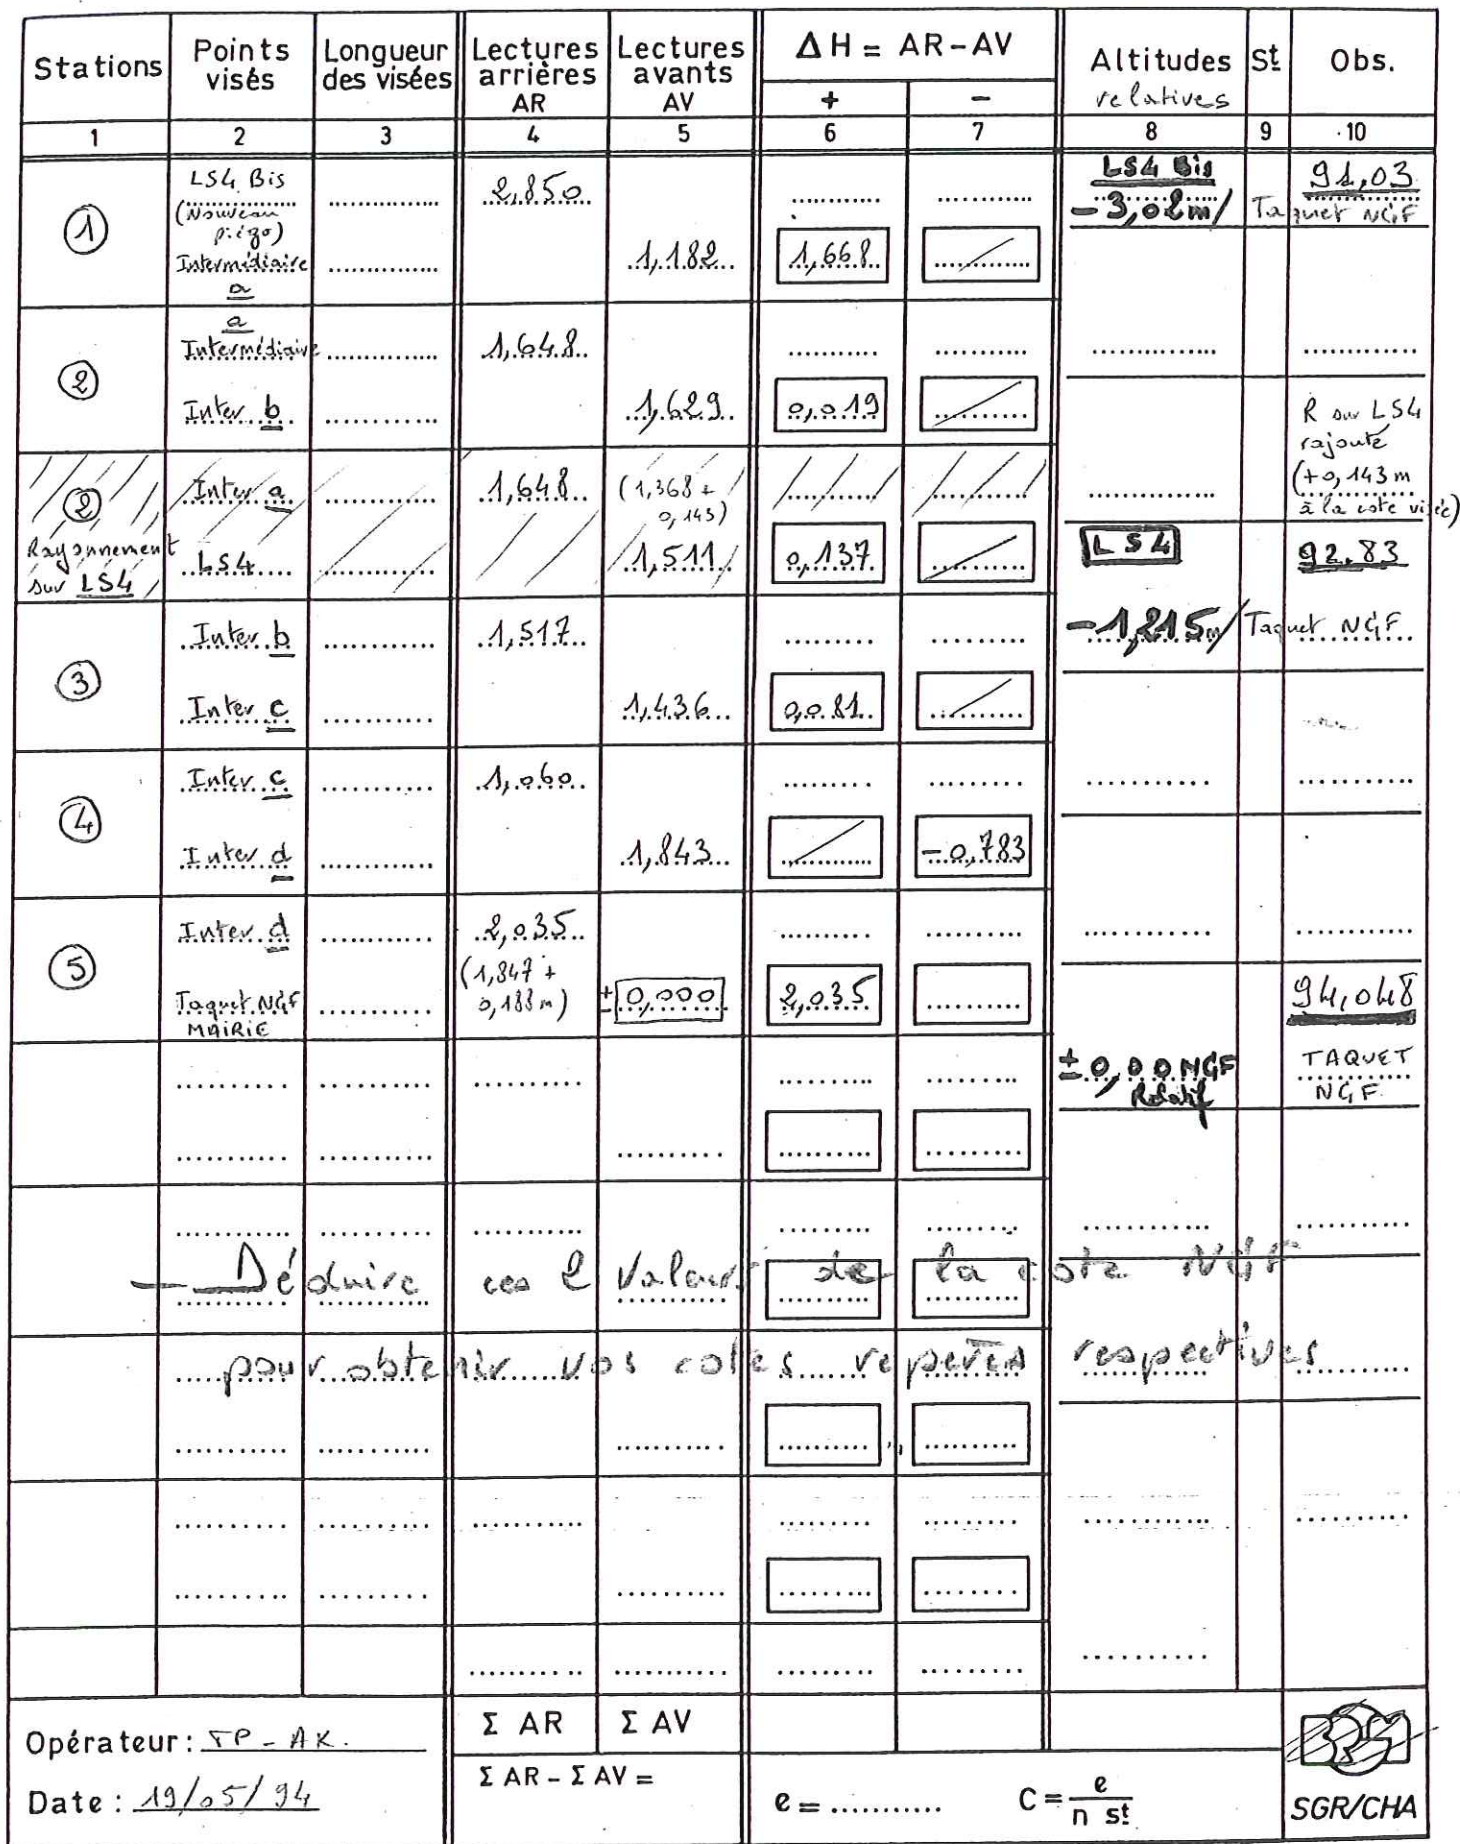 Stations
Points visés
Longueur des visées
Lectures arrières AR
Lectures avants AV
ΔH = AR-AV
+
-
Altitudes relatives
St
Obs.
1 2 3 4 5 6 7 8 9 10
LS4 Bis 2,850 LS4 Bis 91,03
(Nouveau piézo) -3,02m/ Taquet NGF
①
Intermédiaire a 1,182 1,668
a
Intermédiaire 1,648
②
Inter b 1,629 0,019
R sur LS4
rajouté
(+0,143 m
à la cote visée)
② Inter a 1,648 (1,368 +
0,143)
Rayonnement
sur LS4
LS4 1,511 0,137 LS4 92,83
Inter b 1,517 -1,215m/ Taquet NGF
③
Inter c 1,436 0,081
Inter c 1,060
④
Inter d 1,843 -0,783
Inter d 2,035
⑤ (1,847 +
0,188 m)
Taquet NGF
MAIRIE ±0,000 2,035 94,048
±0,00 NGF
Relatif
TAQUET
NGF
- Déduire ces 2 Valeurs de la cote NGF
pour obtenir vos cotes repères respectives
Opérateur: TP-AK.
Date: 19/05/94
Σ AR Σ AV
Σ AR - Σ AV =
e = ........... C = e / n st
SGR/CHA